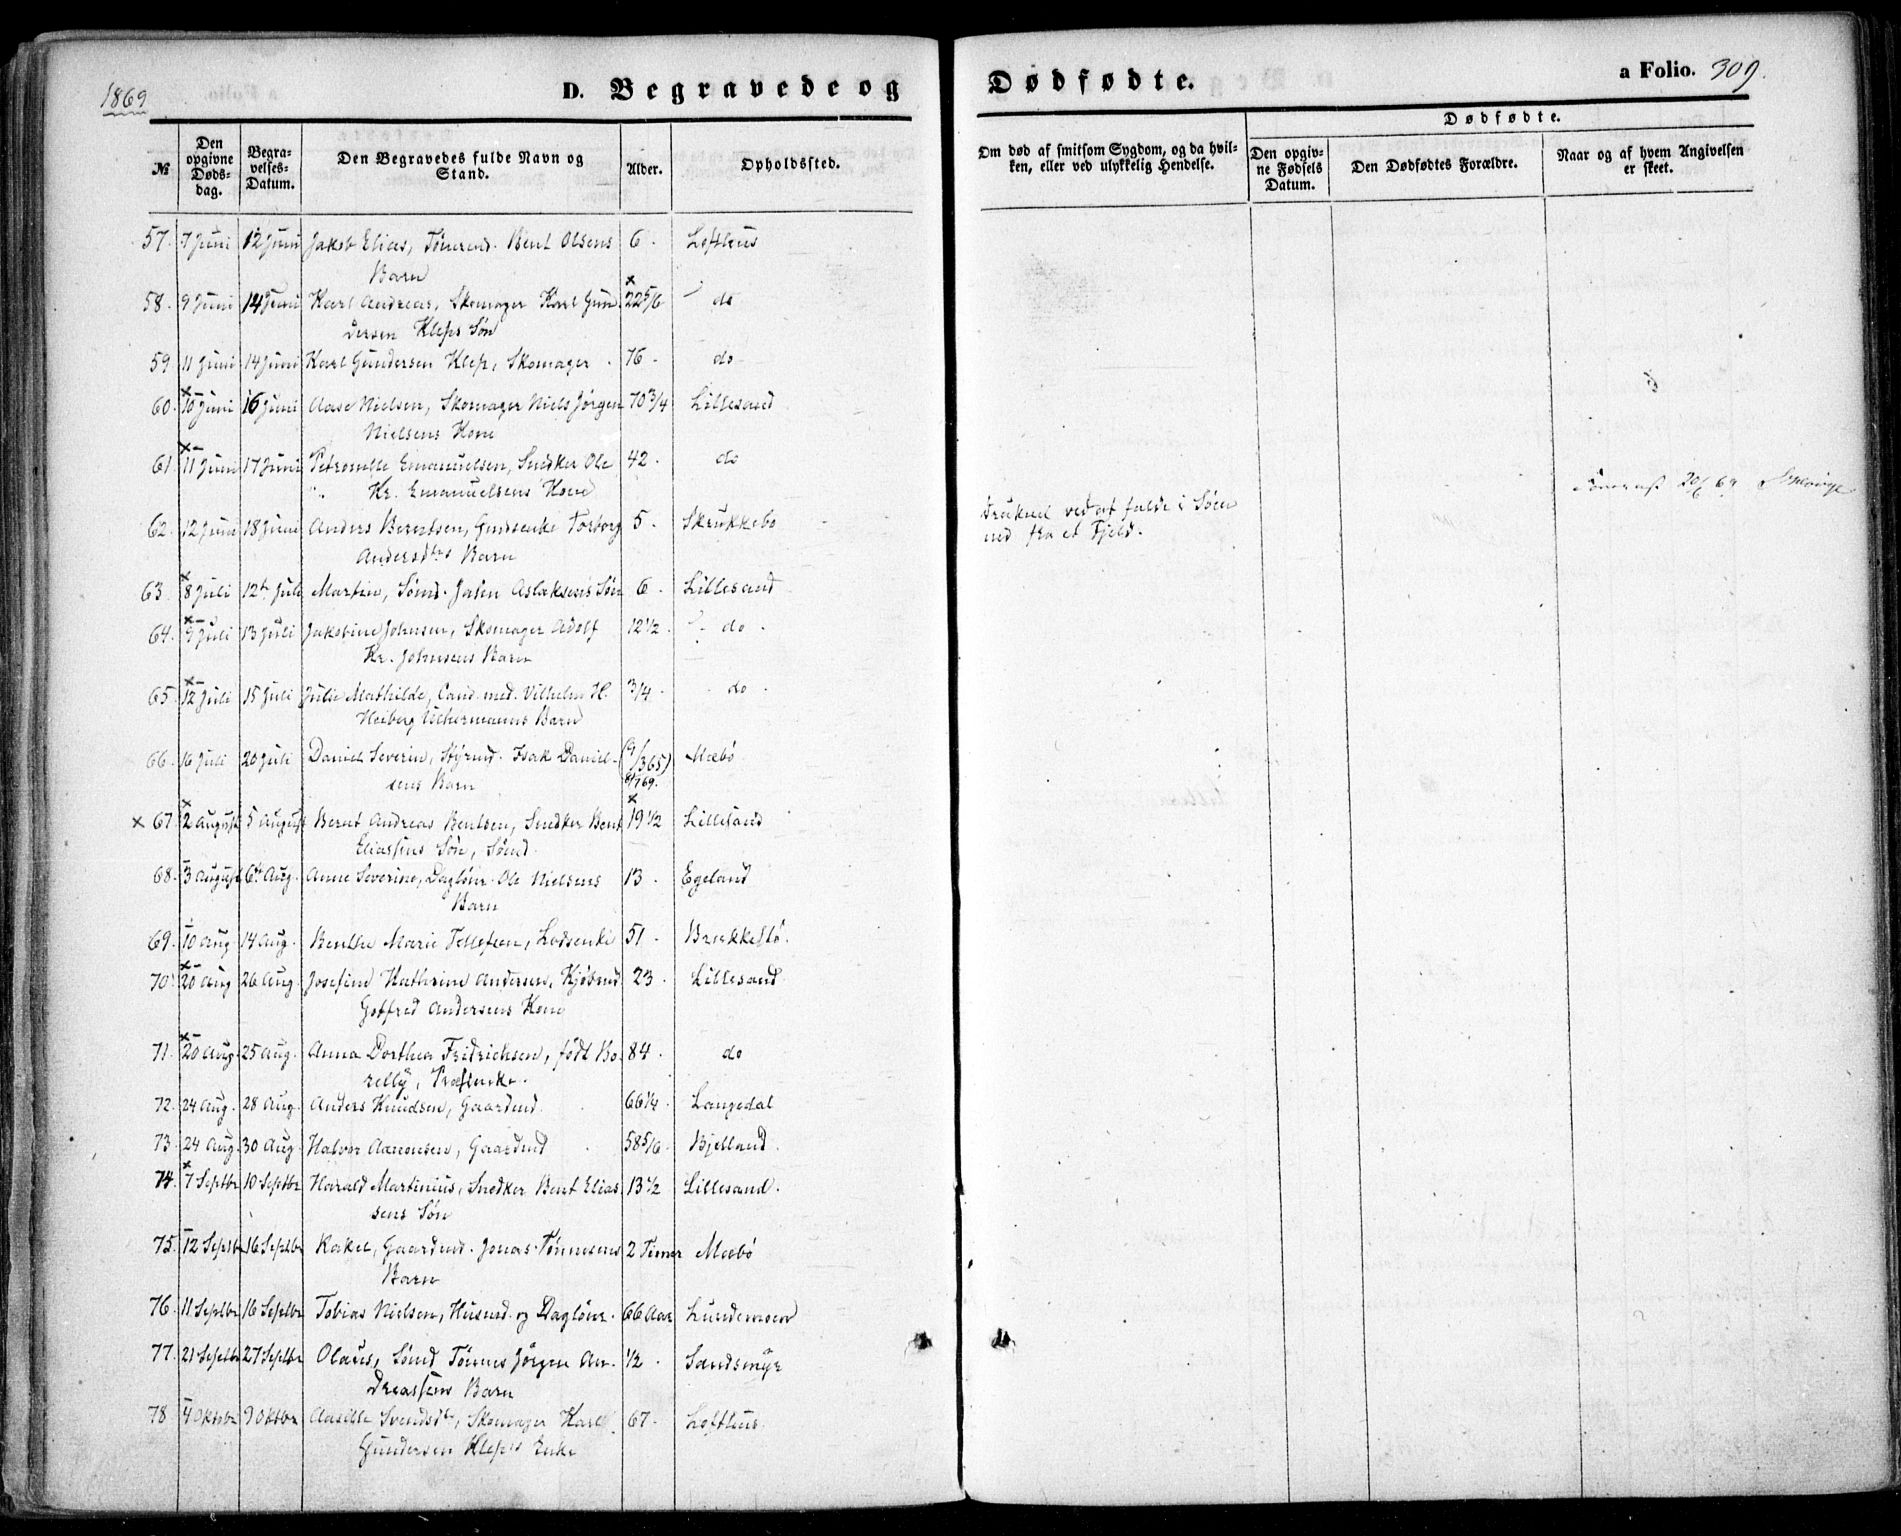 1869
D. Begravede og Dødfødte.
a Folio. 309.
№
Den opgivne Døds-dag.
Begra-velses-Datum.
Den Begravedes fulde Navn og Stand.
Alder.
Opholdssted.
Om død af smitsom Sygdom, og da hvil-ken, eller ved ulykkelig Hendelse.
Dødfødte.
Den opgiv-ne Fødsels Datum.
Den Dødfødtes Forældre.
Naar og af hvem Angivelsen er skeet.
57. 7 Juni 12 Juni Jakob Elias, Tømrmd. Bent Olsens 6. Lofthus
Barn
58. 9 Juni 14 Juni Karl Andreas, Skomager Karl Gun- 22 5/6 do
dersen Kleps Søn
59 11 Juni 14 Juni Karl Gundersen Klep, Skomager 76. do
60. 10 Juni 16 Juni Aase Nielsen, Skomager Niels Jørgen 70 3/4 Lillesand
Nielsens Kone
61 11 Juni 17 Juni Petronelle Emanuelsen, Snedker Ole 42. do
Kr. Emanuelsens Kone
62. 12 Juni 18 Juni Anders Berntsen, Torborg 5. Skrukkebo druknet ved at falde i Søen
Andersdtrs Barn ned fra et Fjeld.
63. 8 Juli 12te Juli Martin, Sømd. Jahn Aslaksens Søn 6. Lillesand
64. 9 Juli 13 Juli Jakobine Johnsen, Skomager Adolf 12 1/2. do.
Kr. Johnsens Barn
65. 12 Juli 15 Juli Julie Mathilde, Cand. med. Vilhelm H. 3/4. do.
Heiberg Uchermanns Barn
66. 16 Juli 20 Juli Daniel Severin, Styrmd. Isak Daniel- (9/365) Mæbø
sens Barn 8/7 69.
× 67 2 August 5 August Bernt Andreas Bentsen, Snedker Bent 19 1/2 Lillesand
Eliassens Søn, Sømd.
68. 3 August 6te Aug. Anne Severine, Dagløner Ole Nielsens 13. Egeland
Barn
69. 10 Aug 14 Aug. Benthe Marie Tellefsen, Lodsenke 51. Brækkestø.
70. 20 Aug 26 Aug. Josefine Kathrine Andersen, Kjøbmd. 23. Lillesand
Gotfred Andersens Kone
71. 20 Aug. 25 Aug. Anna Dorthea Fridrichsen, født Bo- 84. do
relly,
72. 24 Aug. 28 Aug. Anders Knudsen, Gaardmd. 66 1/4. Langedal
73. 24 Aug. 30 Aug Halvor Aanonsen, Gaardmd 58 5/6. Bjelland.
74. 7 Septbr 10 Septbr Harald Martinius, Snedker Bent Elias- 13 1/2 Lillesand.
sens Søn
75. 12 Septbr 16 Septbr Rakel, Gaardmd. Jonas Tønnesens 2 Timer Mæbø
Barn
76. 11 Septbr 16 Septbr Tobias Nielsen, Husmd. og Dagløner. 66 Aar Lundemoen
77. 21 Septbr 27 Septbr Olaus, Sømd Tønnes Jørgen An- 1/2. Sandsmyr
dreassens Barn
78 4 Oktobr 9 Oktbr Aasille Svendsdtr, Skomager Karl 67. Lofthus.
Gundersen Kleps Enke